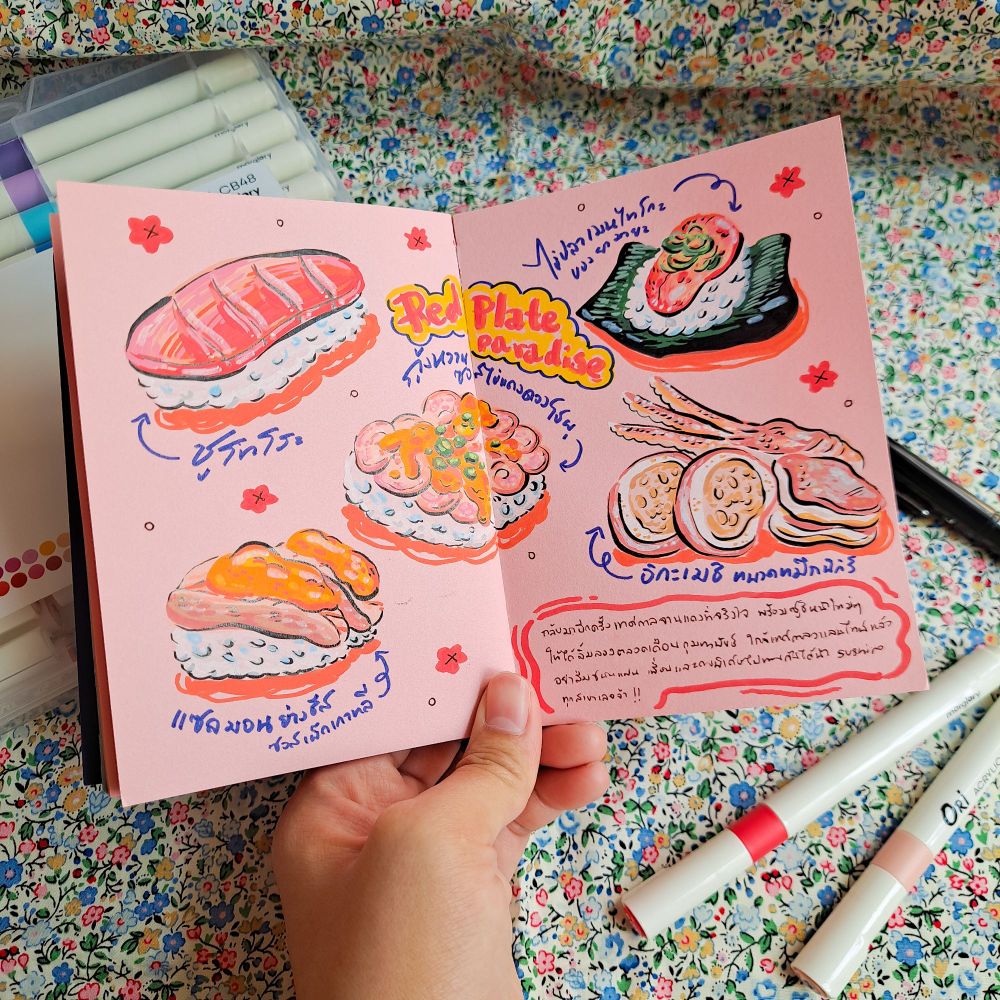 morgiary
CB48
Red Plate
paradise
ไข่ปลาเมนไทโกะ
ของยามายะ
กุ้งหวาน
ซอสไข่แดงดองโชยุ
ชูโทโระ
แซลมอนย่างชีส
ซอสเม็กเกาหลี
อิกะเมชิ หนวดหมึกนิกิริ
กลับมาอีกครั้ง เทศกาลจานแดงที่จริงใจ พร้อมซูชิหน้าใหม่ๆ
ให้ได้ลิ้มลองตลอดเดือนกุมภาพันธ์ ใกล้เทศกาลวาเลนไทน์แล้ว
อย่าลืมชวนแฟน เพื่อนและ
ทุกสาขาเลยจ้า !!
morgiary
Ori
ACRYLIC